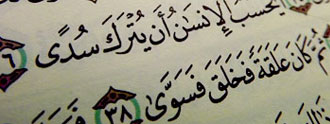 يَحْسَبُ الْإِنسَٰنُ أَن يُتْرَكَ سُدًى ٣٦
ثُمَّ كَانَ عَلَقَةً فَخَلَقَ فَسَوَّىٰ ٣٨